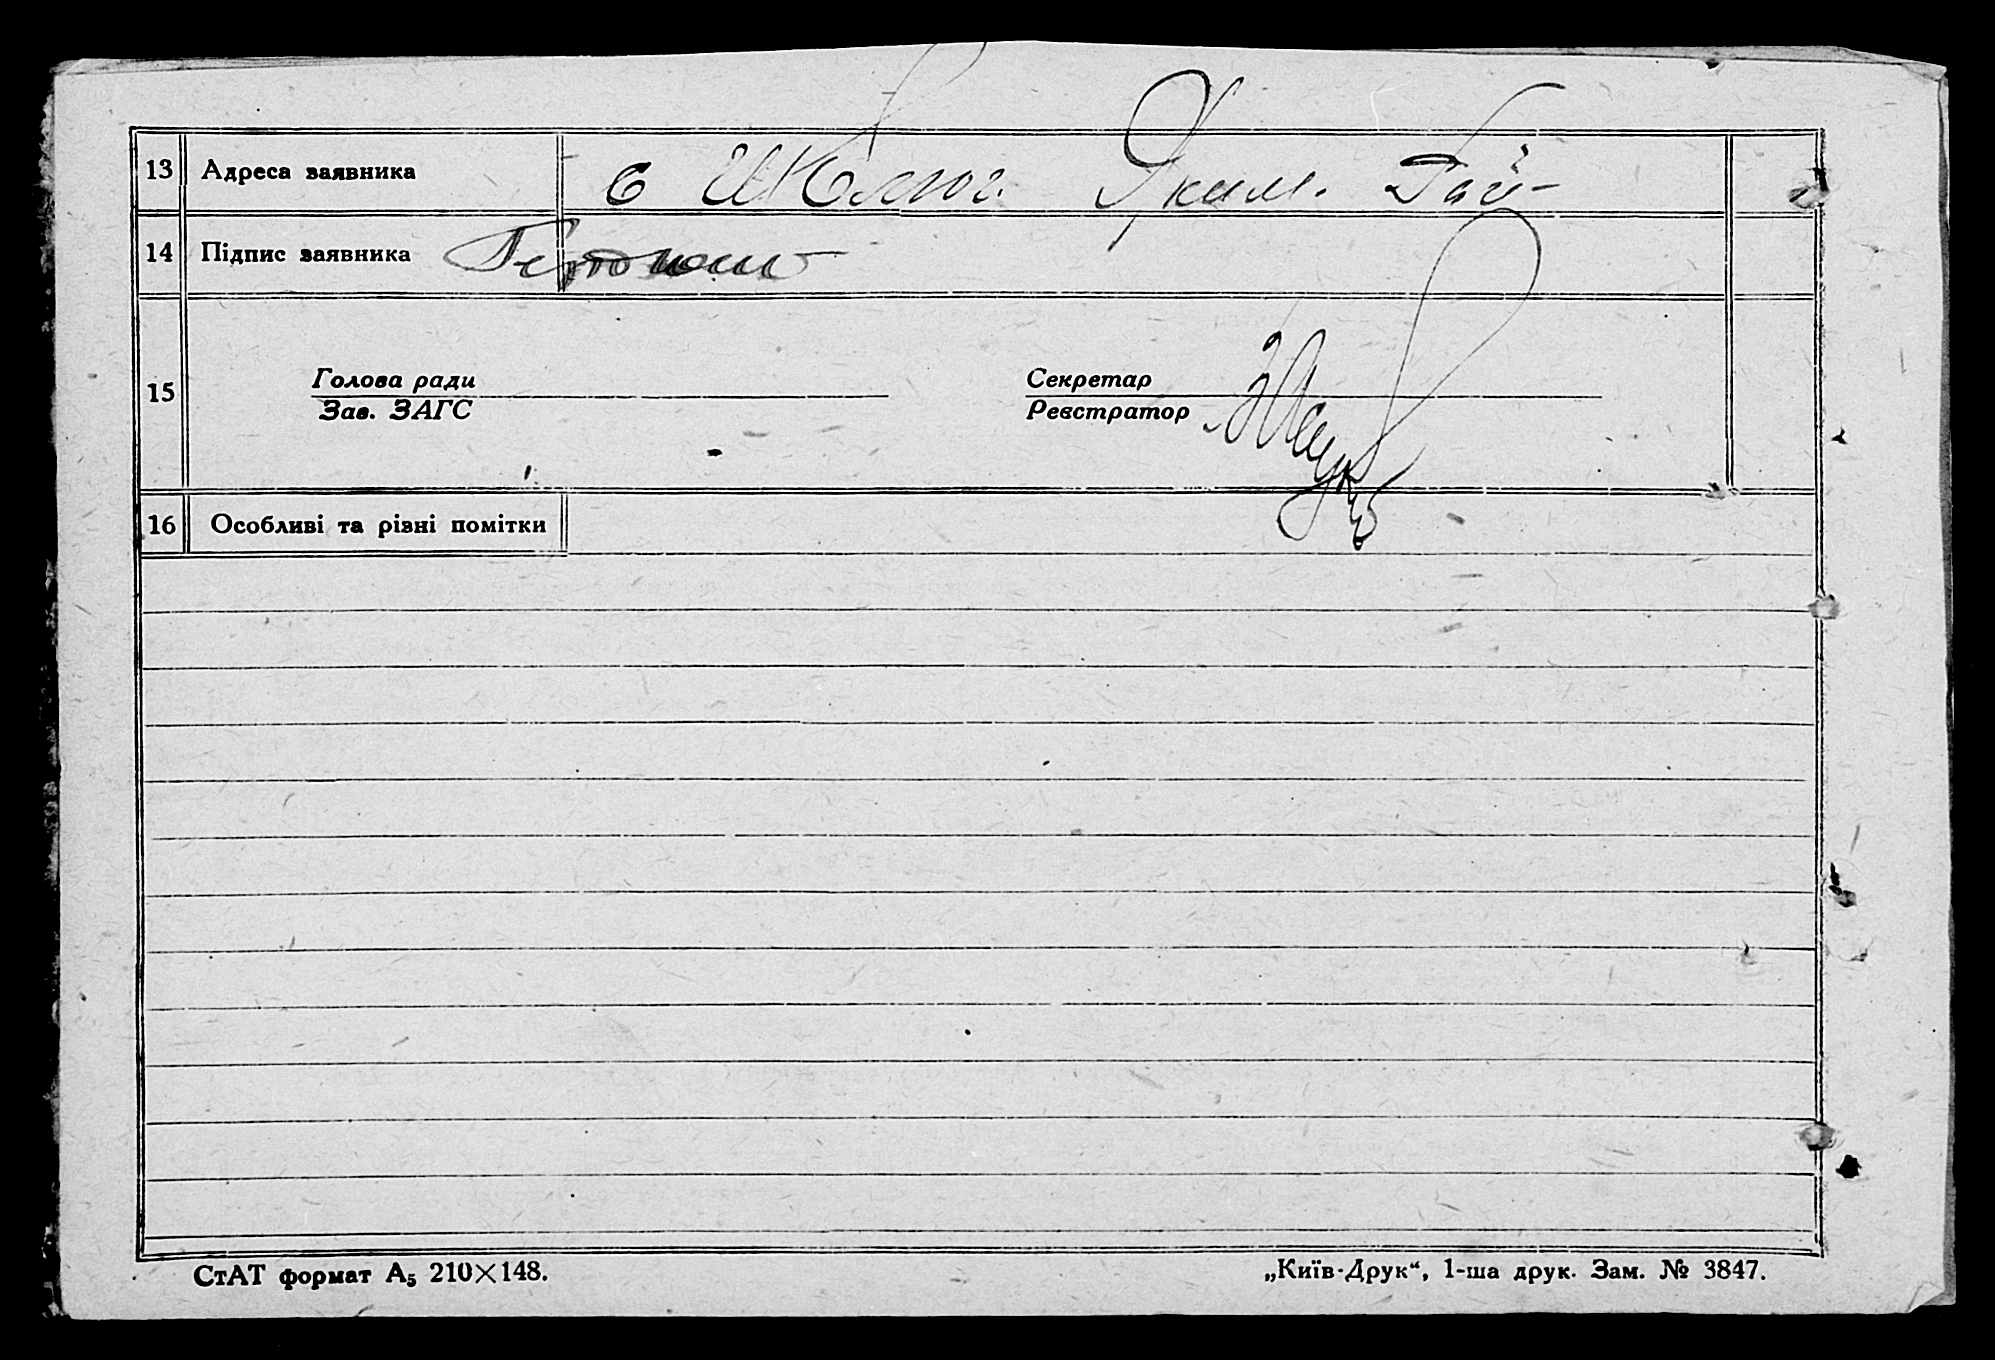 13 Адреса заявника с Шюлюг. Яким. Рай-
14 Підпис заявника
15
Голова ради
Зав. ЗАГС
Секретар
Реєстратор
16 Особливі та різні помітки
СтАТ формат А₅ 210×148.
„Київ-Друк“, 1-ша друк. Зам. № 3847.